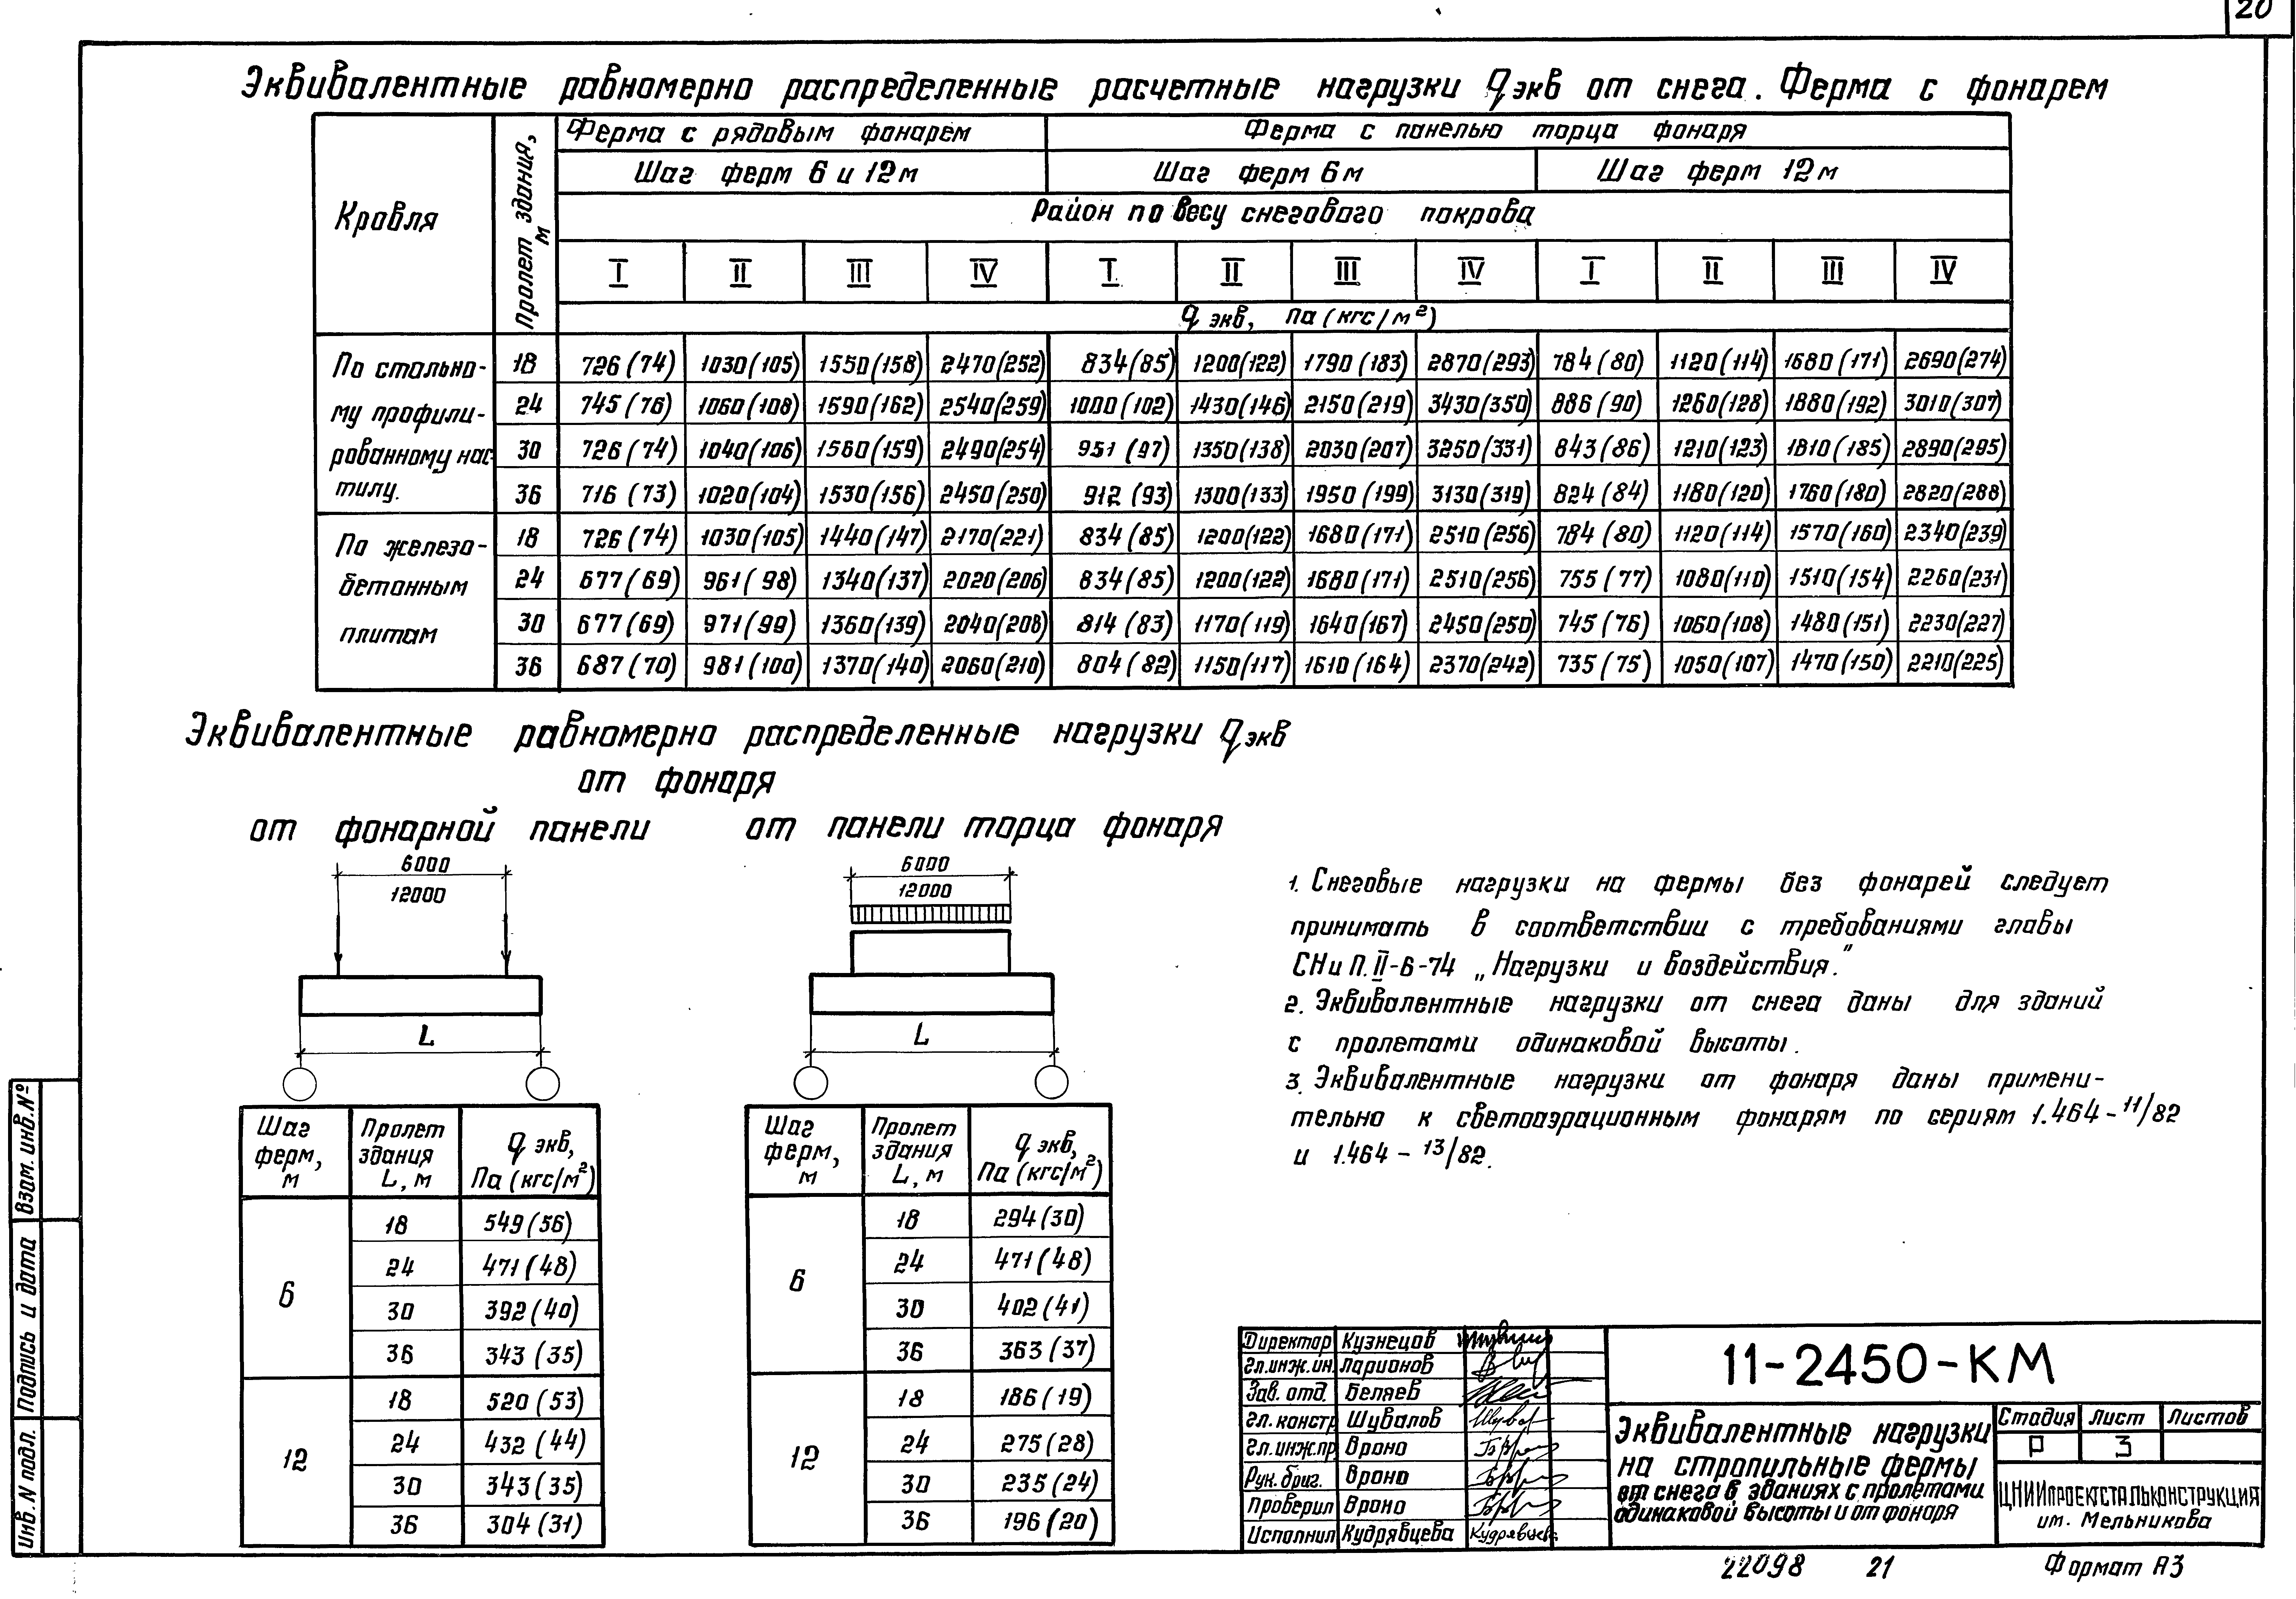 20
Эквивалентные равномерно распределенные расчетные нагрузки q экв от снега. Ферма с фонарем
Кровля
Пролет здания, м
Ферма с рядовым фонарем
Ферма с панелью торца фонаря
Шаг ферм 6 и 12м
Шаг ферм 6м
Шаг ферм 12м
Район по весу снегового покрова
I II III IV I II III IV I II III IV
q экв, Па (кгс/м²)
По стально-
му профили-
рованному нас-
тилу.
18 726 (74) 1030(105) 1550(158) 2470(252) 834(85) 1200(122) 1790 (183) 2870(293) 784 (80) 1120(114) 1680 (171) 2690(274)
24 745 (76) 1060(108) 1590(162) 2540(259) 1000 (102) 1430(146) 2150(219) 3430(350) 886 (90) 1260(128) 1880(192) 3010(307)
30 726 (74) 1040(106) 1560(159) 2490(254) 951 (97) 1350(138) 2030(207) 3250(331) 843 (86) 1210(123) 1810(185) 2890(295)
36 716 (73) 1020(104) 1530(156) 2450(250) 912 (93) 1300(133) 1950 (199) 3130(319) 824 (84) 1180(120) 1760(180) 2820(288)
По железо-
бетонным
плитам
18 726 (74) 1030(105) 1440(147) 2170(221) 834 (85) 1200(122) 1680(171) 2510(256) 784 (80) 1120(114) 1570(160) 2340(239)
24 677(69) 961(98) 1340(137) 2020(206) 834(85) 1200(122) 1680(171) 2510(256) 755 (77) 1080(110) 1510(154) 2260(231)
30 677(69) 971(99) 1360(139) 2040(208) 814 (83) 1170(119) 1640(167) 2450(250) 745(76) 1060(108) 1480(151) 2230(227)
36 687(70) 981(100) 1370(140) 2060(210) 804 (82) 1150(117) 1610 (164) 2370(242) 735 (75) 1050(107) 1470(150) 2210(225)
Эквивалентные равномерно распределенные нагрузки q экв
от фонаря
от фонарной панели
6000
12000
L
от панели торца фонаря
6000
12000
L
Шаг ферм, м
Пролет здания L, м
q экв, Па (кгс/м²)
6
18 549(56)
24 471(48)
30 392(40)
36 343 (35)
12
18 520 (53)
24 432 (44)
30 343(35)
36 304 (31)
Шаг ферм, м
Пролет здания L, м
q экв, Па (кгс/м²)
6
18 294(30)
24 471(48)
30 402(41)
36 363 (37)
12
18 186 (19)
24 275 (28)
30 235 (24)
36 196 (20)
1. Снеговые нагрузки на фермы без фонарей следует
принимать в соответствии с требованиями главы
СНиП.II-6-74 „Нагрузки и воздействия."
2. Эквивалентные нагрузки от снега даны для зданий
с пролетами одинаковой высоты.
3. Эквивалентные нагрузки от фонаря даны примени-
тельно к светоаэрационным фонарям по сериям 1.464-11/82
и 1.464-13/82.
Взам. инв.№
Подпись и дата
Инв. N подл.
Директор Кузнецов
Гл.инж.ин. Ларионов
Зав. отд. Беляев
Гл. констр. Шувалов
Гл.инж.пр. Врона
Рук. бриг. Врона
Проверил Врона
Исполнил Кудрявцева
11-2450-КМ
Эквивалентные нагрузки
на стропильные фермы
от снега в зданиях с пролетами
одинаковой высоты и от фонаря
Стадия Лист Листов
Р 3
ЦНИИПРОЕКТСТАЛЬКОНСТРУКЦИЯ
им. Мельникова
22098 21
Формат А3